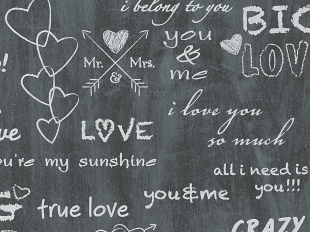 i belong to you
BIG
LOV
you
&
me
Mr. Mrs.
&
i love you
so much
LOVE
you're my sunshine
all i need is
you!!!
you&me
true love
CRAZY